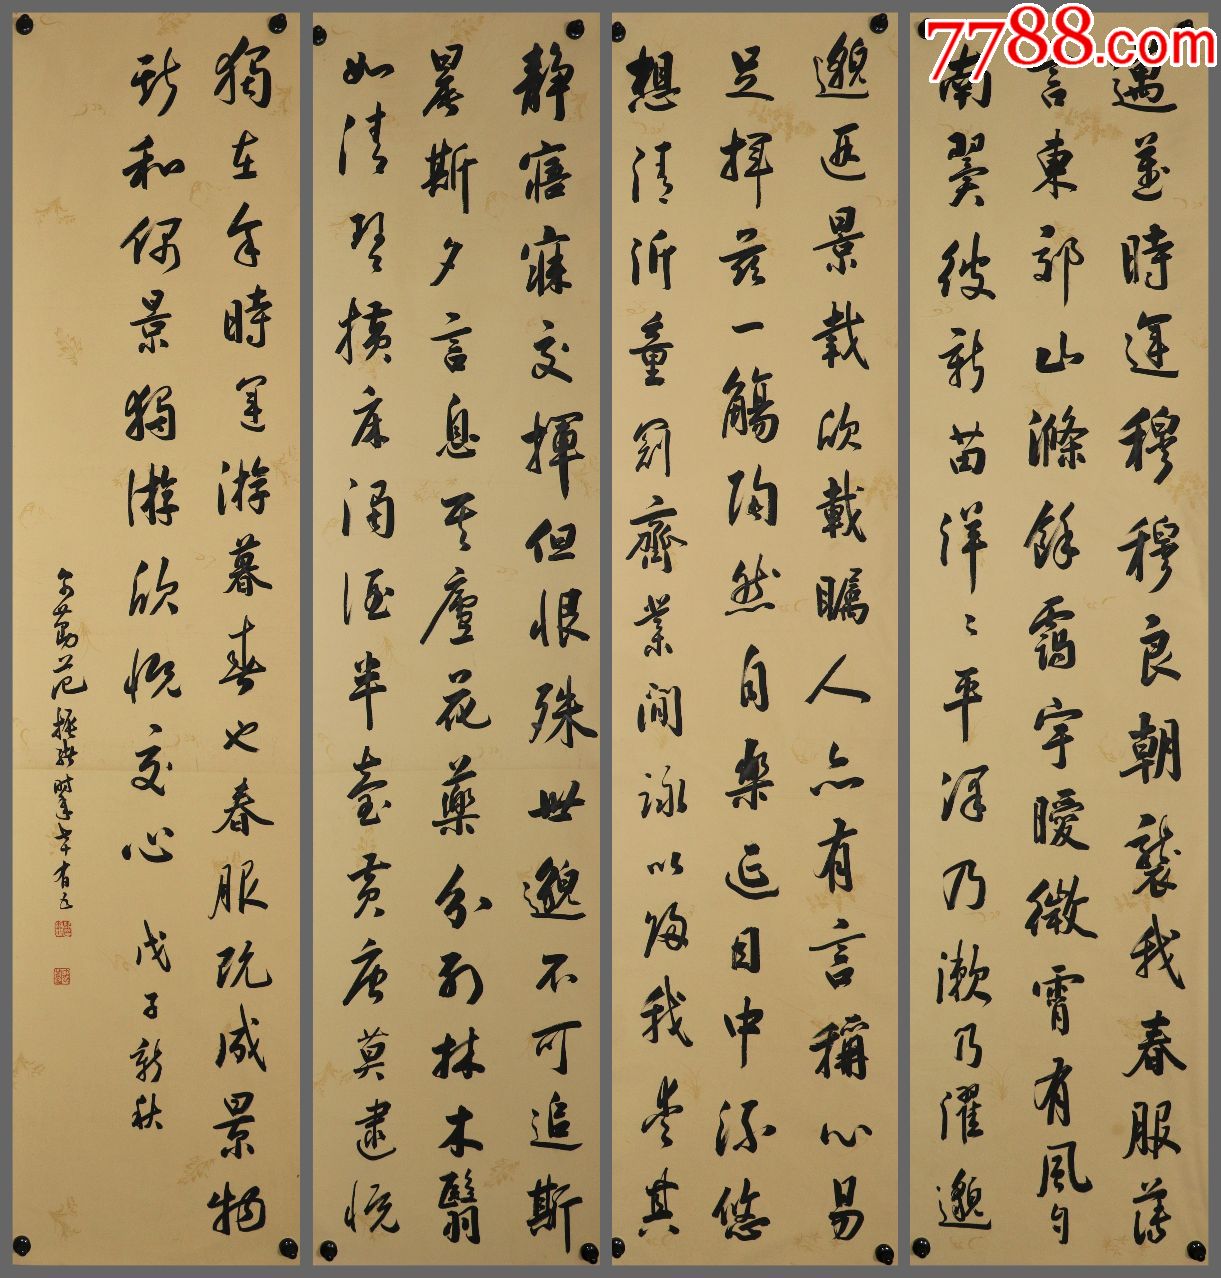 7788.com
邁邁時運穆穆良朝襲我春服薄
言東郊山滌餘靄宇曖微霄有風自
南翼彼新苗洋〻平澤乃漱乃濯邈
邈遐景載欣載矚人亦有言稱心易
足揮茲一觴陶然自樂延目中流悠
想清沂童冠齊業閒詠以歸我愛其
静寤寐交揮但恨殊世邈不可追斯
晨斯夕言息其廬花藥分列林木翳
如清琴横床濁酒半壺黄唐莫逮慨
獨在余時運游暮春也春服既成景物
斯和偶景獨游欣慨交心 戊子新秋
范振緒時年七十有五